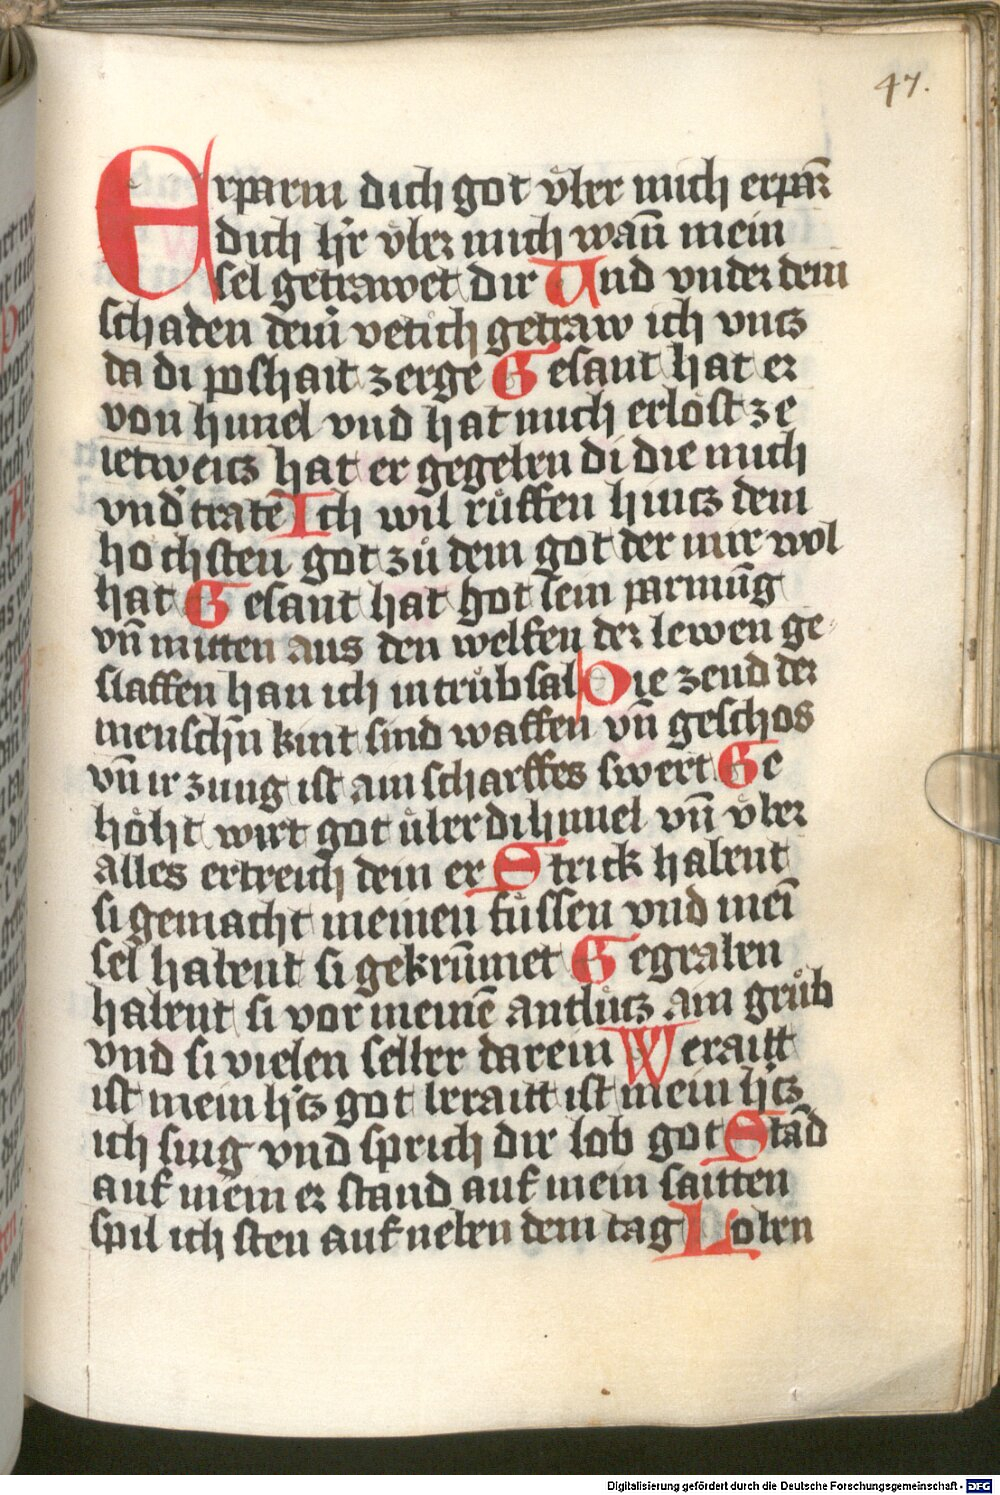 47.
Erparm dich got vͤber mich erpar̄
dich h'r vͤber mich wañ mein
sel getrawet dir Und vnder dem
schaten deinˀ vetich getraw ich vntz
da di poshait zerge Gesant hat er
von himel vnd hat mich erlost ze
ietweitz hat er gegeben di die mich
vnd'tratē Ich wil růffen hintz dem
hochsten got zů dem got der mir wol
hat Gesant hat got sein parmūg
vn̄ mitten aus den welfen der lewen ge-
slaffen han ich in trůbsal Die zend der
menschn̄ kint sind waffen vn̄ geschos
vn̄ ir zung ist ain scharffes swert Ge
hoͤht wirt got uͤber di himel vn̄ vͤber
alles ertreich dein er Strick habent
si gemacht meinen fuͤssen vnd mei̅
sel habent si gekrūmet Gegraben
habent si vor meinē antluͤtz ain grůb
vnd si vielen selber darein Weraitt
ist mein h'tz got beraitt ist mein h'tz
ich sing vnd sprich dir lob got Stād
auf mein er stand auf mein saitten
spil ich sten auf neben dem tag Loben
Digitalisierung gefördert durch die Deutsche Forschungsgemeinschaft - DFG